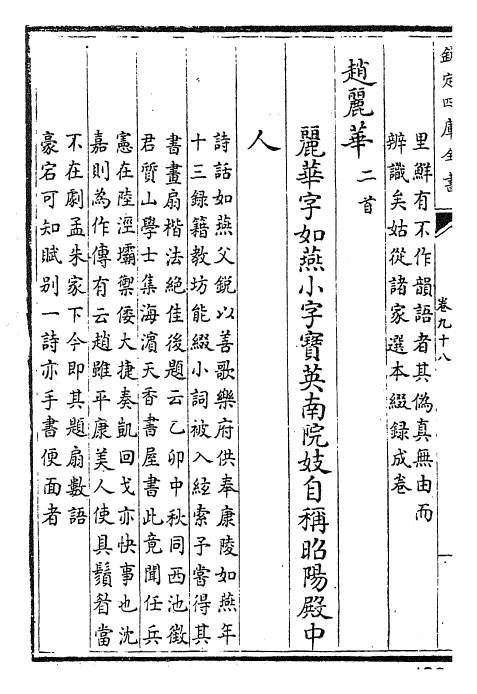 欽定四庫全書
卷九十八
里鮮有不作韻語者其僞真無由而
辨識矣姑從諸家選本綴録成卷
趙麗華二首
麗華字如燕小字寶英南院妓自稱昭陽殿中
人
詩話如燕父鋭以善歌樂府供奉康陵如燕年
十三録籍教坊能綴小詞被入絃索予嘗得其
書畫扇楷法絶佳後題云乙卯中秋同西池徵
君質山學士集海濵天香書屋書此竟聞任兵
憲在陸涇壩禦倭大捷奏凱回戈亦快事也沈
嘉則為作傳有云趙雖平康美人使具鬚眉當
不在劇孟朱家下今即其題扇數語
豪宕可知賦别一詩亦手書便面者